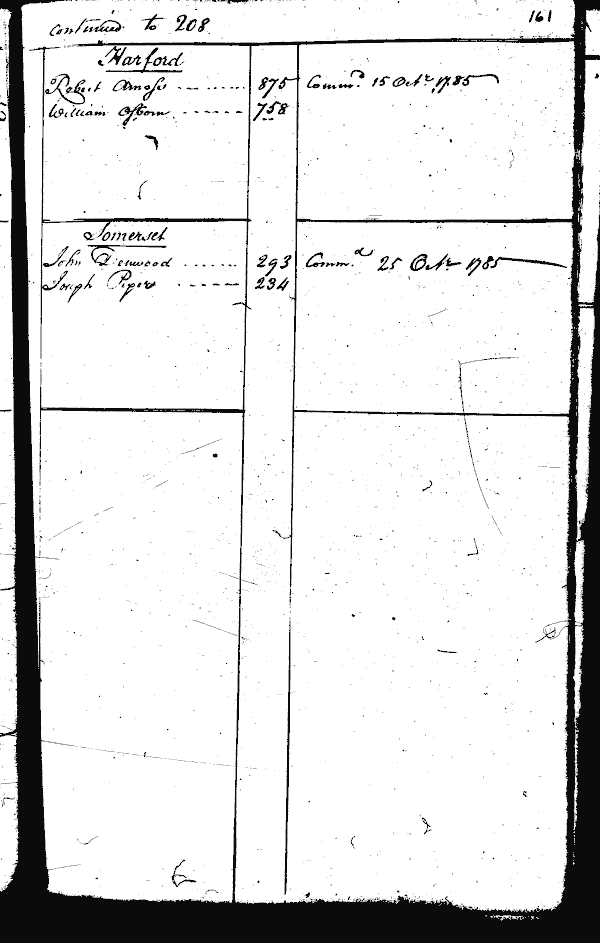 continued to 208
161
Harford
Robert Amoss 875 Commd. 15 Octr. 1785
William Osborn 758
Somerset
John Denwood 293 Commd. 25 Octr. 1785
Joseph 234